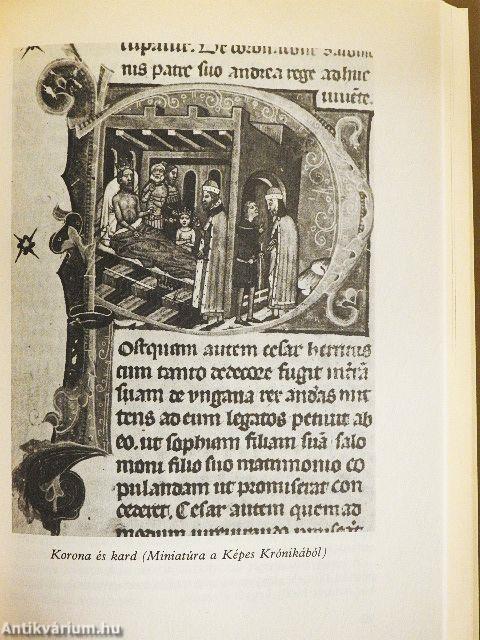 nis patre suo andrea rege adhuc
vivēte.
Ostquam autem cesar henricus
cum tanto dedecore fugit in t'rā
suam de ungaria rex andas mit
tens ad eum legatos petivit ab
eo. ut sophiam filiam suā salo
moni filio suo matrimonio co
pulandam ut promiserat con
cederet. Cesar autem quem ad
Korona és kard (Miniatúra a Képes Krónikából)
Antikvárium.hu